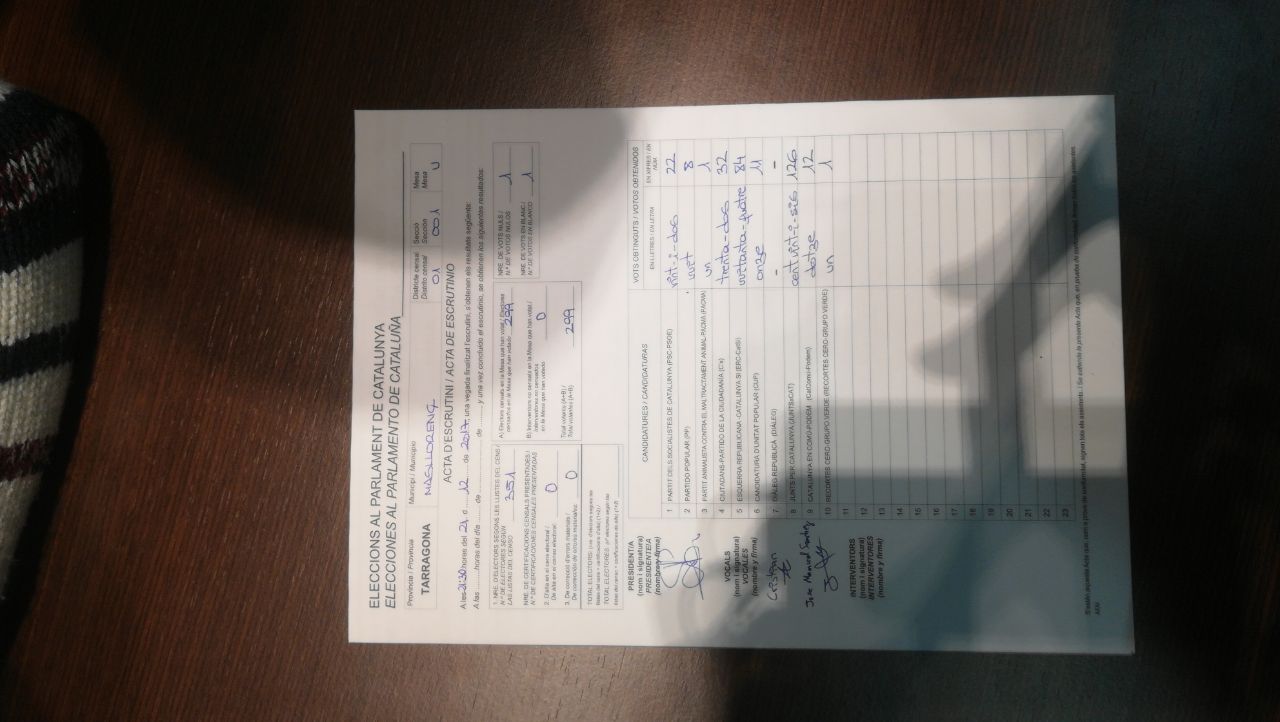 ELECCIONS AL PARLAMENT DE CATALUNYA
ELECCIONES AL PARLAMENTO DE CATALUÑA
Província / Provincia
TARRAGONA
Municipi / Municipio
MASLLORENÇ
Districte censal
Distrito censal
01
Secció
Sección
001
Mesa
Mesa
U
ACTA D'ESCRUTINI / ACTA DE ESCRUTINIO
A les 21:30 hores del 21 d 12 de 2017, una vegada finalitzat l'escrutini, s'obtenen els resultats següents:
A las ........ horas del día ........ de ........ de ........ y una vez concluido el escrutinio, se obtienen los siguientes resultados:
1. NRE. D'ELECTORS SEGONS LES LLISTES DEL CENS /
N.º DE ELECTORES SEGÚN
LAS LISTAS DEL CENSO
351
NRE. DE CERTIFICACIONS CENSALS PRESENTADES /
N.º DE CERTIFICACIONES CENSALES PRESENTADAS
2. D'alta en el cens electoral /
De alta en el censo electoral:
0
3. De correcció d'errors materials /
De corrección de errores materiales:
0
A) Electors censats en la Mesa que han votat / Electores
censados en la Mesa que han votado
299
B) Interventors no censats en la Mesa que han votat /
Interventores no censados
en la Mesa que han votado
0
Total votants (A+B) /
Total votantes (A+B)
299
NRE. DE VOTS NULS /
N.º DE VOTOS NULOS
1
NRE. DE VOTS EN BLANC /
N.º DE VOTOS EN BLANCO
1
PRESIDENT/A
(nom i signatura)
PRESIDENTE/A
(nombre y firma)
VOCALS
(nom i signatura)
VOCALES
(nombre y firma)
Cristian
Jose Manuel Sanchez
INTERVENTORS
(nom i signatura)
INTERVENTORES
(nombre y firma)
CANDIDATURES / CANDIDATURAS
VOTS OBTINGUTS / VOTOS OBTENIDOS
EN LLETRES / EN LETRA
EN XIFRES / EN NÚM
1 PARTIT DELS SOCIALISTES DE CATALUNYA (PSC-PSOE) vint-i-dos 22
2 PARTIDO POPULAR (PP) vuit 8
3 PARTIT ANIMALISTA CONTRA EL MALTRACTAMENT ANIMAL-PACMA (PACMA) un 1
4 CIUTADANS-PARTIDO DE LA CIUDADANÍA (C's) trenta-dos 32
5 ESQUERRA REPUBLICANA-CATALUNYA SÍ (ERC-CatSí) vuitanta-quatre 84
6 CANDIDATURA D'UNITAT POPULAR (CUP) onze 11
7 DIÁLEG REPUBLICÀ (DIÀLEG) - -
8 JUNTS PER CATALUNYA (JUNTSxCAT) cent vint-i-sis 126
9 CATALUNYA EN COMÚ-PODEM (CatComú-Podem) dotze 12
10 RECORTES CERO-GRUPO VERDE (RECORTES CERO-GRUPO VERDE) un 1
11
12
13
14
15
16
17
18
19
20
21
22
23